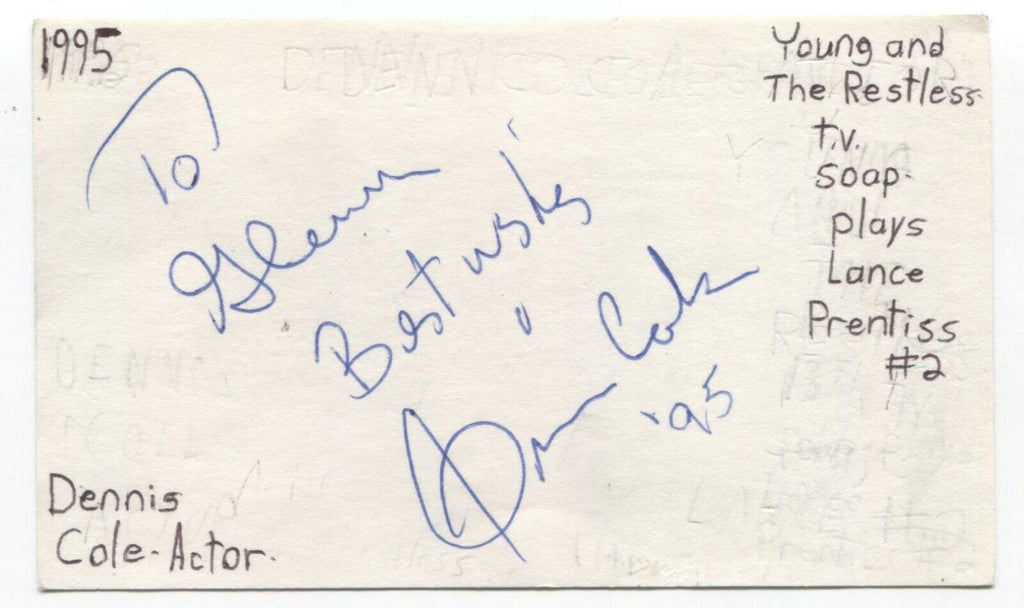 1995
To
Glenn
Best wishes
Dennis Cole
'95
Young and
The Restless
t.v.
soap.
plays
Lance
Prentiss
#2
Dennis
Cole-Actor.